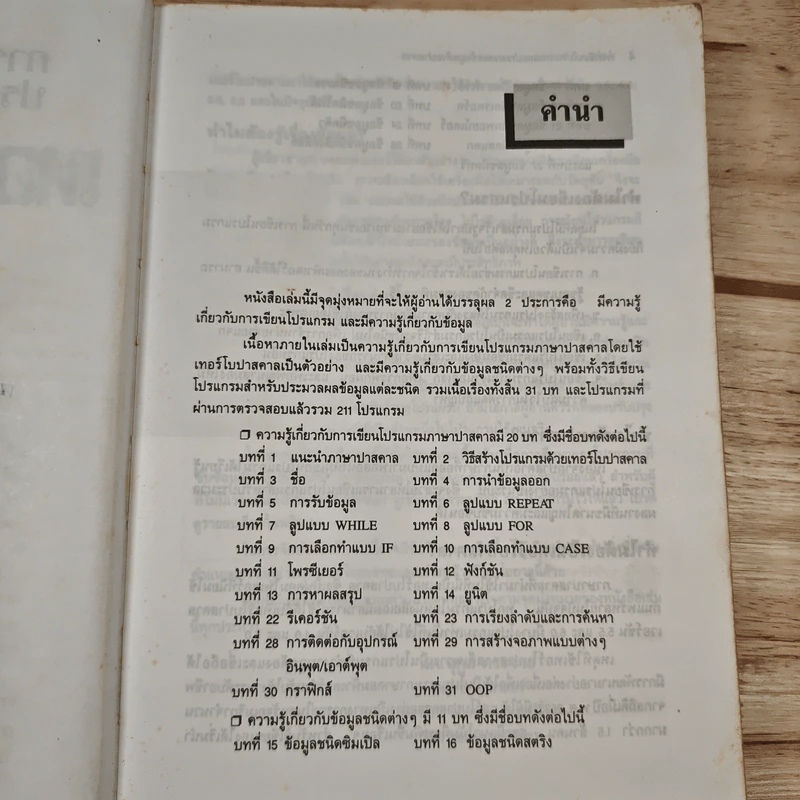 คำนำ
หนังสือเล่มนี้มีจุดมุ่งหมายที่จะให้ผู้อ่านได้บรรลุผล 2 ประการคือ มีความรู้
เกี่ยวกับการเขียนโปรแกรม และมีความรู้เกี่ยวกับข้อมูล
เนื้อหาภายในเล่มเป็นความรู้เกี่ยวกับการเขียนโปรแกรมภาษาปาสคาลโดยใช้
เทอร์โบปาสคาลเป็นตัวอย่าง และมีความรู้เกี่ยวกับข้อมูลชนิดต่างๆ พร้อมทั้งวิธีเขียน
โปรแกรมสำหรับประมวลผลข้อมูลแต่ละชนิด รวมเนื้อเรื่องทั้งสิ้น 31 บท และโปรแกรมที่
ผ่านการตรวจสอบแล้วรวม 211 โปรแกรม
❐ ความรู้เกี่ยวกับการเขียนโปรแกรมภาษาปาสคาลมี 20 บท ซึ่งมีชื่อบทดังต่อไปนี้
บทที่ 1 แนะนำภาษาปาสคาล บทที่ 2 วิธีสร้างโปรแกรมด้วยเทอร์โบปาสคาล
บทที่ 3 ชื่อ บทที่ 4 การนำข้อมูลออก
บทที่ 5 การรับข้อมูล บทที่ 6 ลูปแบบ REPEAT
บทที่ 7 ลูปแบบ WHILE บทที่ 8 ลูปแบบ FOR
บทที่ 9 การเลือกทำแบบ IF บทที่ 10 การเลือกทำแบบ CASE
บทที่ 11 โพรซีเยอร์ บทที่ 12 ฟังก์ชัน
บทที่ 13 การหาผลสรุป บทที่ 14 ยูนิต
บทที่ 22 รีเคอร์ชัน บทที่ 23 การเรียงลำดับและการค้นหา
บทที่ 28 การติดต่อกับอุปกรณ์ บทที่ 29 การสร้างจอภาพแบบต่างๆ
อินพุต/เอาต์พุต
บทที่ 30 กราฟิกส์ บทที่ 31 OOP
❐ ความรู้เกี่ยวกับข้อมูลชนิดต่างๆ มี 11 บท ซึ่งมีชื่อบทดังต่อไปนี้
บทที่ 15 ข้อมูลชนิดซิมเปิล บทที่ 16 ข้อมูลชนิดสตริง